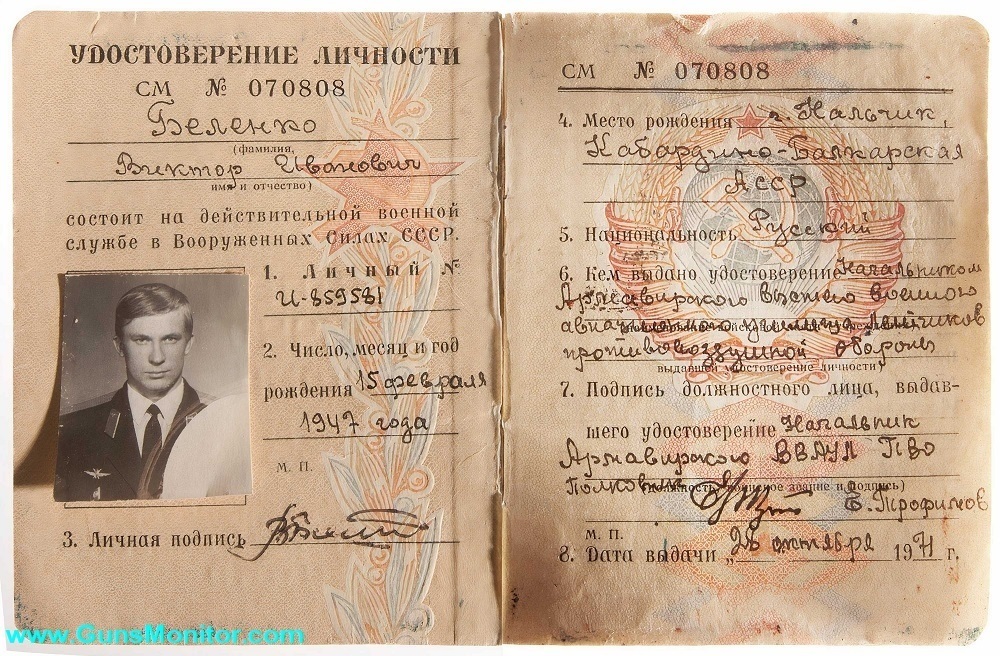 УДОСТОВЕРЕНИЕ ЛИЧНОСТИ
СМ № 070808
Беленко
(фамилия,
Виктор Иванович
имя и отчество)
состоит на действительной военной
службе в Вооруженных Силах СССР.
1. Личный №
И-859531
2. Число, месяц и год
рождения 15 февраля
1947 года
М. П.
3. Личная подпись
СМ № 070808
4. Место рождения г. Нальчик,
Кабардино-Балкарская
АССР
5. Национальность Русский
6. Кем выдано удостоверение Начальником
Армавирского высшего военного
авиационного училища летчиков
противовоздушной обороны
выдавшей удостоверение личности)
7. Подпись должностного лица, выдав-
шего удостоверение Начальник
Армавирского ВВАУЛ ПВО
Полковник Е. Трофимов
(должность, воинское звание и подпись)
М. П.
8. Дата выдачи „26 октября 1971 г.
www.GunsMonitor.com